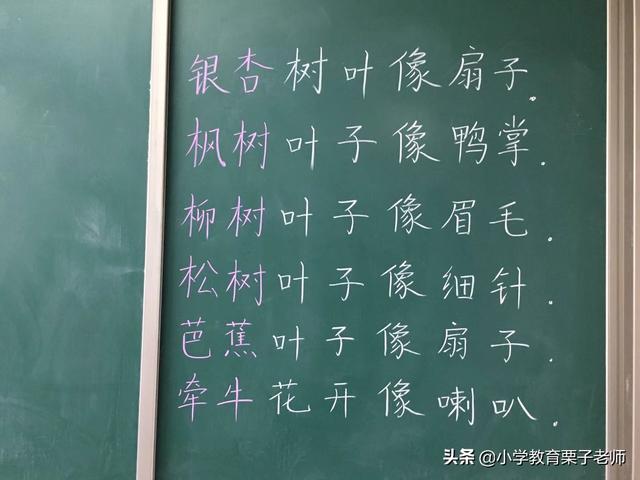 银杏树叶像扇子。
枫树叶子像鸭掌.
柳树叶子像眉毛.
松树叶子像细针.
芭蕉叶子像扇子.
牵牛花开像喇叭.
头条 @小学教育栗子老师